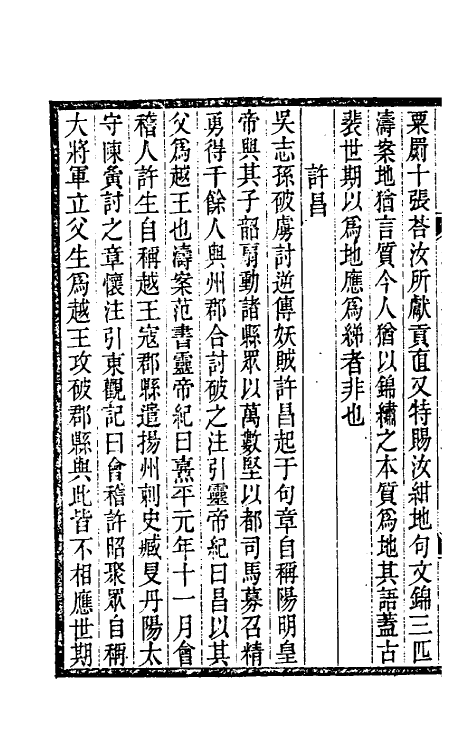 粟罽十張荅汝所獻貢直又特賜汝紺地句文錦三匹
濤案地猶言質今人猶以錦繡之本質爲地其語蓋古
裴世期以爲地應爲綈者非也
許昌
吳志孫破虜討逆傳妖賊許昌起于句章自稱陽明皇
帝與其子韶扇動諸縣眾以萬數堅以都司馬募召精
勇得千餘人與州郡合討破之注引靈帝紀曰昌以其
父爲越王也濤案范書靈帝紀曰熹平元年十一月會
稽人許生自稱越王寇郡縣遣揚州刺史臧旻丹陽太
守陳夤討之章懷注引東觀記曰會稽許昭聚眾自稱
大將軍立父生爲越王攻破郡縣與此皆不相應世期